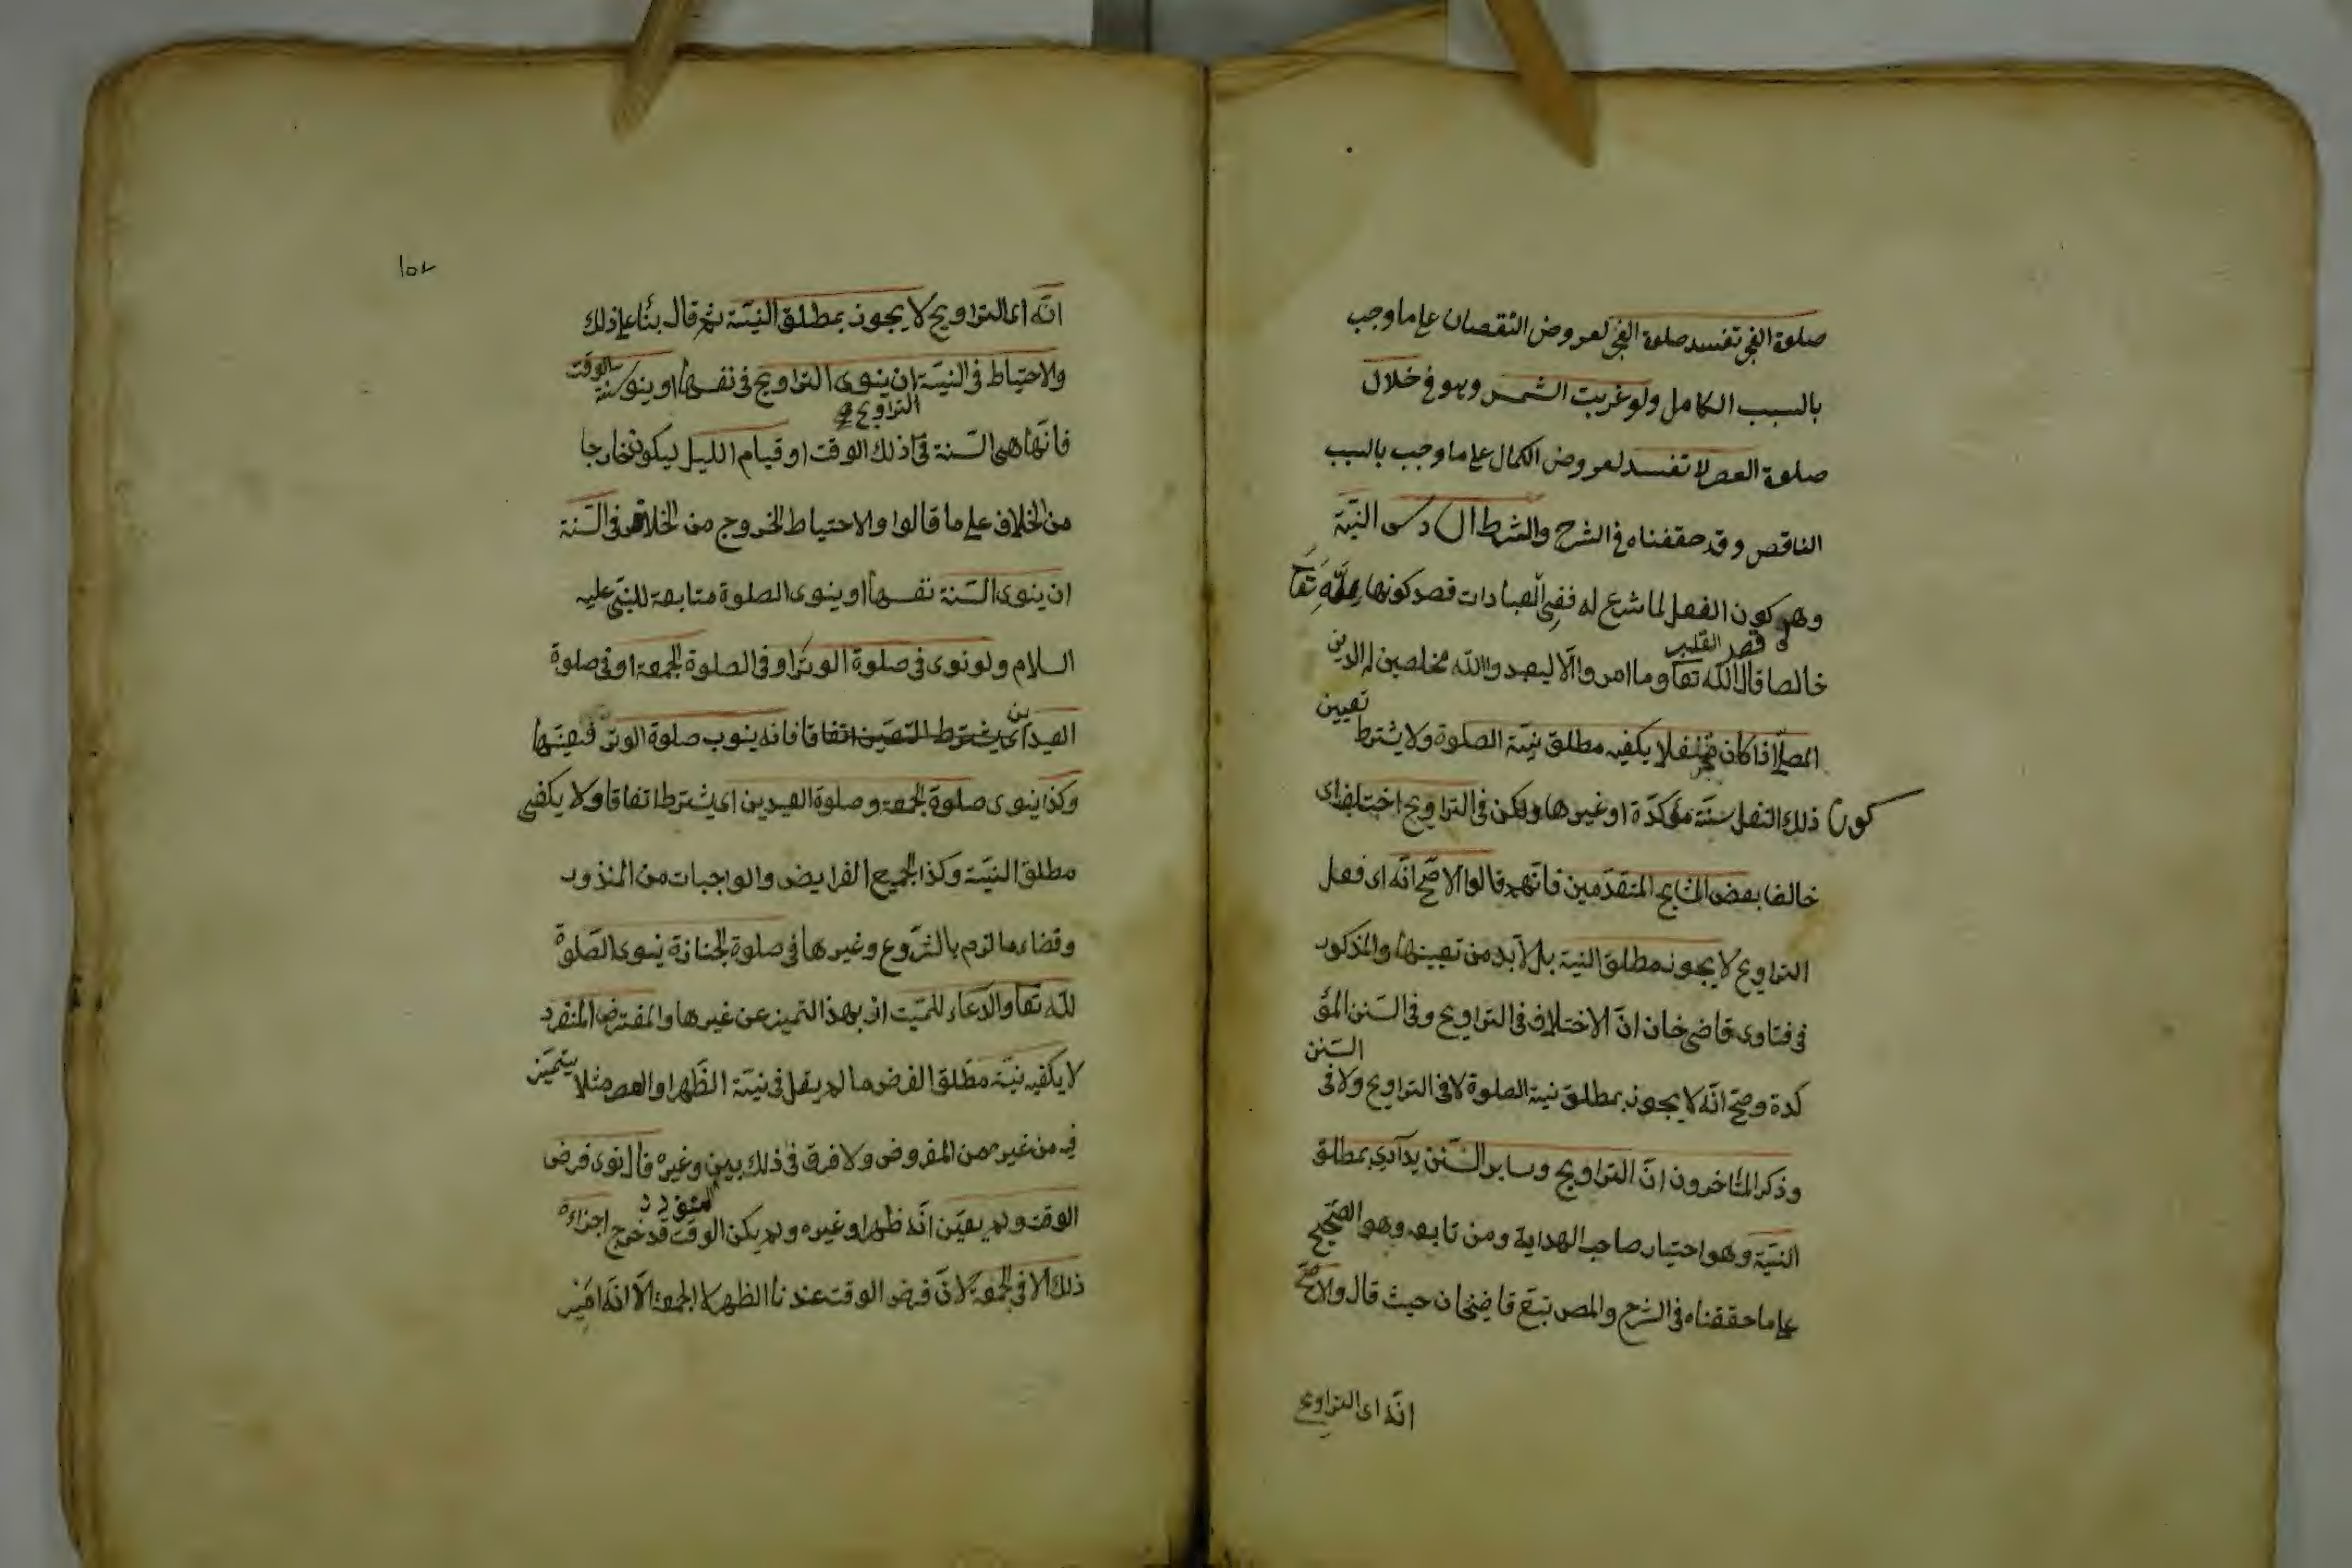 صلوة الفجر تفسد صلوة الفجر لعروض النقصان على ما وجب
بالسبب الكامل ولو غربت الشمس وهو في خلال
صلوة العصر لا تفسد لعروض الكمال على ما وجب بالسبب
الناقص وقد حققناه في الشرح والشرط السادس النية
وهو كون الفعل لما شرع له ففي العبادات قصد كونها لله تعا
قصد القلب
خالصا قال الله تعا وما امروا الا ليعبدوا الله مخلصين له الدين
المصلى اذا كان متنفلا يكفيه مطلق نية الصلوة ولا يشترط تعيين
كون ذلك النفل سنة مؤكدة او غيرها ولكن في التراويح اختلف اى
خالف بعض المشايخ المتقدمين فانهم قالوا الاصح انه اى فعل
التراويح لا يجوز بمطلق النية بل لا بد من تعيينها والمذكور
في فتاوى قاضى خان ان الاختلاف في التراويح وفي السنن المؤ
كدة وصح انه لا يجوز بمطلق نية الصلوة لا في التراويح ولا في السنن
وذكر المتأخرون ان التراويح وساير السنن يتأدى بمطلق
النية وهو اختيار صاحب الهداية ومن تابعه وهو الصحيح
على ما حققناه في الشرح والمص تبع قاضيخان حيث قال والاصح
انه اى التراويح
انه اى التراويح لا يجوز بمطلق النية ثم قال بناء على ذلك
والاحتياط في النية ان ينوى التراويح في نفسها او ينوى سنة الوقت
التراويح
فانها هى السنة في ذلك الوقت او قيام الليل ليكون خارجا
من الخلاف على ما قالوا والاحتياط الخروج من الخلاف في السنة
ان ينوى السنة نفسها او ينوى الصلوة متابعة للنبى عليه
السلام ولو نوى في صلوة الوتر او في الصلوة الجمعة او في صلوة
العيدين اى يشترط التعين اتفاقا فانه ينوب صلوة الوتر فيعينها
وكذا ينوى صلوة الجمعة وصلوة العيدين اى يشترط اتفاقا ولا يكفى
مطلق النية وكذا الجميع الفرايض والواجبات من المنذور
وقضاء ما لزم بالشروع وغيرها في صلوة الجنازة ينوى الصلوة
لله تعا والدعاء للميت اذ بهذا التميز عن غيرها والمفترض المنفرد
لا يكفيه نية مطلق الفرض ما لم يقل في نية الظهر او العصر مثلا يتميز
فيه من غيره من المفروض ولا فرق في ذلك بين المنفرد وغيره فان نوى فرض
الوقت ولم يعين انه ظهر او غيره ولم يكن الوقت قد خرج اجزاءه
ذلك الا في الجمعة لان فرض الوقت عندنا الظهر لا الجمعة الا انه امر